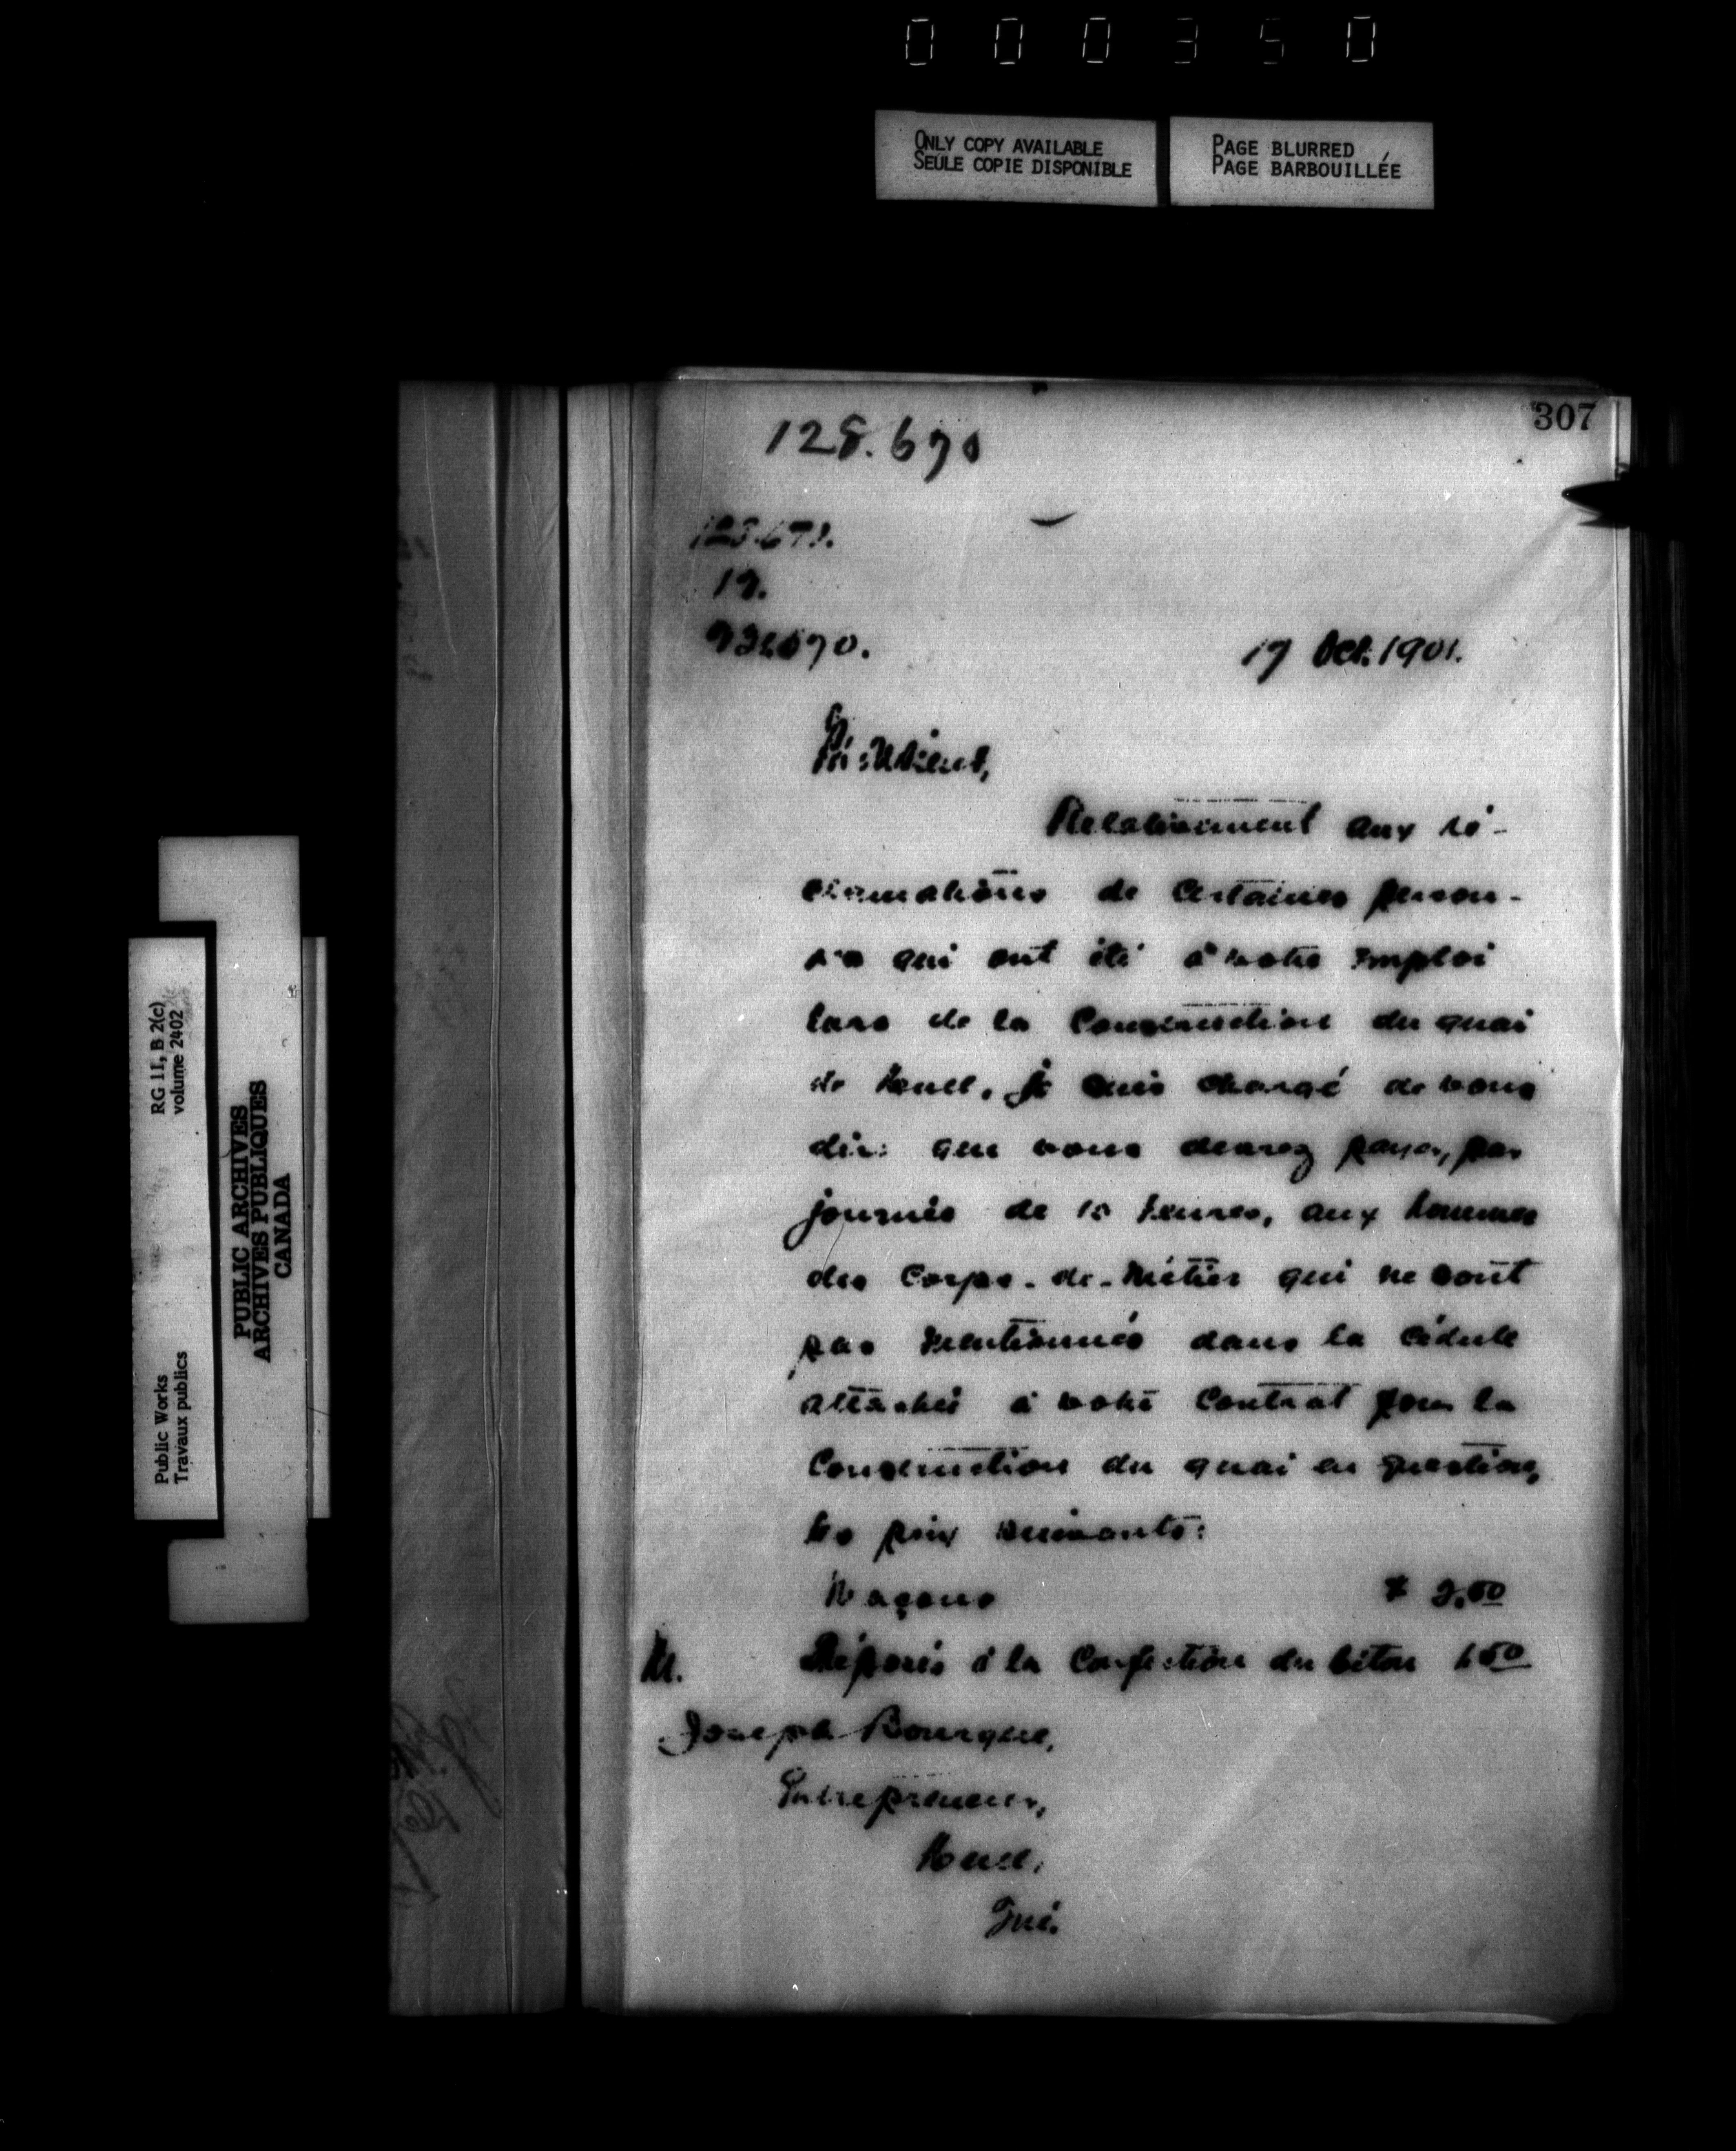 000350
ONLY COPY AVAILABLE
SEULE COPIE DISPONIBLE
PAGE BLURRED
PAGE BARBOUILLÉE
307
128.670
17 Oct. 1901.
Relativement aux ré-
clamations de certaines person-
nes qui ont été à votre emploi
lors de la Construction du quai
de Hull, je suis chargé de vous
dire que vous devrez payer, par
journée de 10 heures, aux hommes
des Corps-de-Métier qui ne sont
pas Mentionnés dans la Cédule
attachée à votre Contrat pour la
Construction du quai en question,
les prix suivants:
Maçons $ 2.50
M. Préposés à la Confection du béton 1.50
Joseph Bourque,
Entrepreneur,
Hull,
Qué.
RG 11, B 2(c)
volume 2402
PUBLIC ARCHIVES
ARCHIVES PUBLIQUES
CANADA
Public Works
Travaux publics